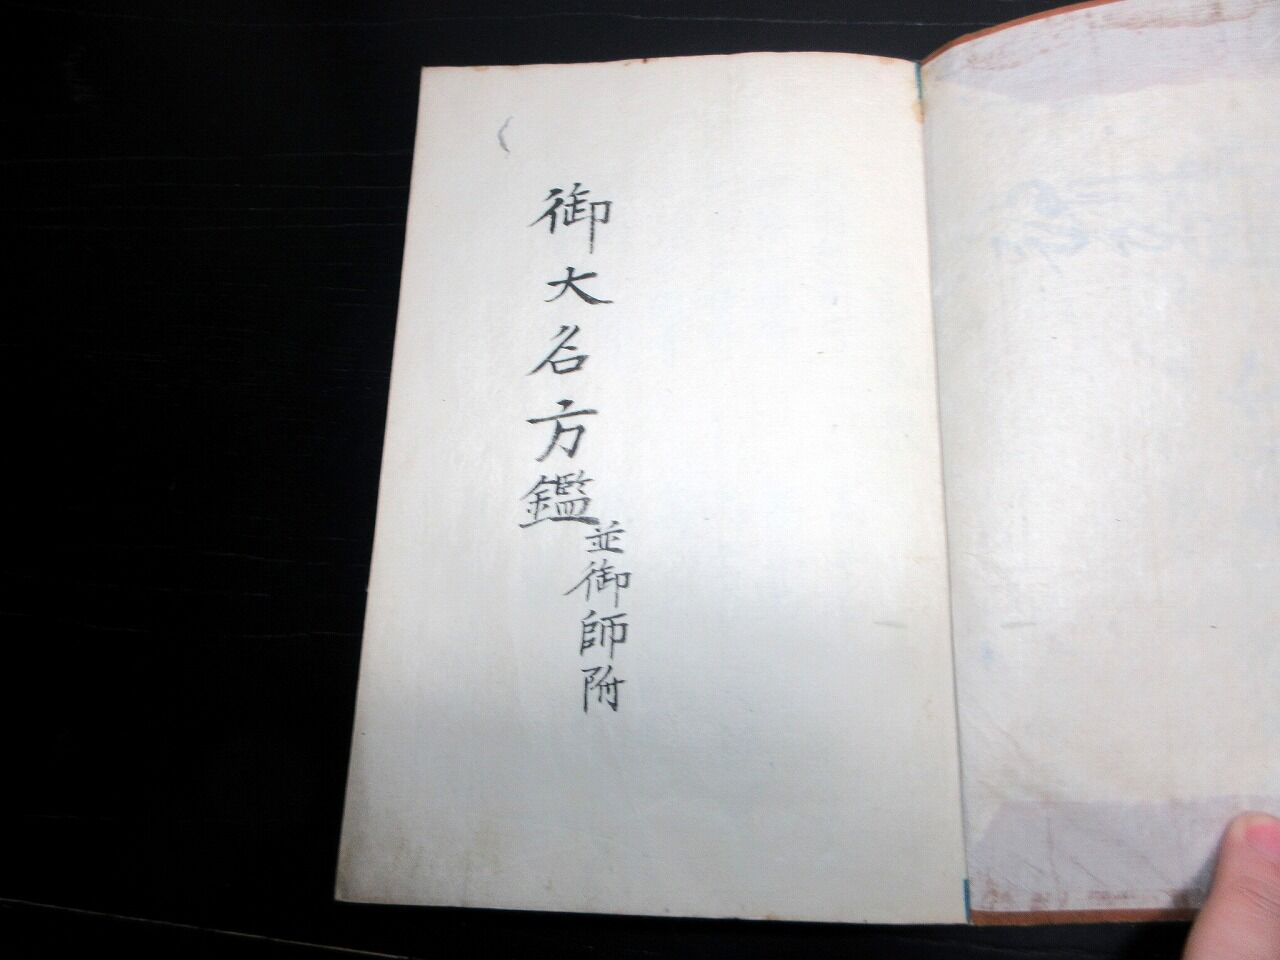 御大名方鑑
並御師附